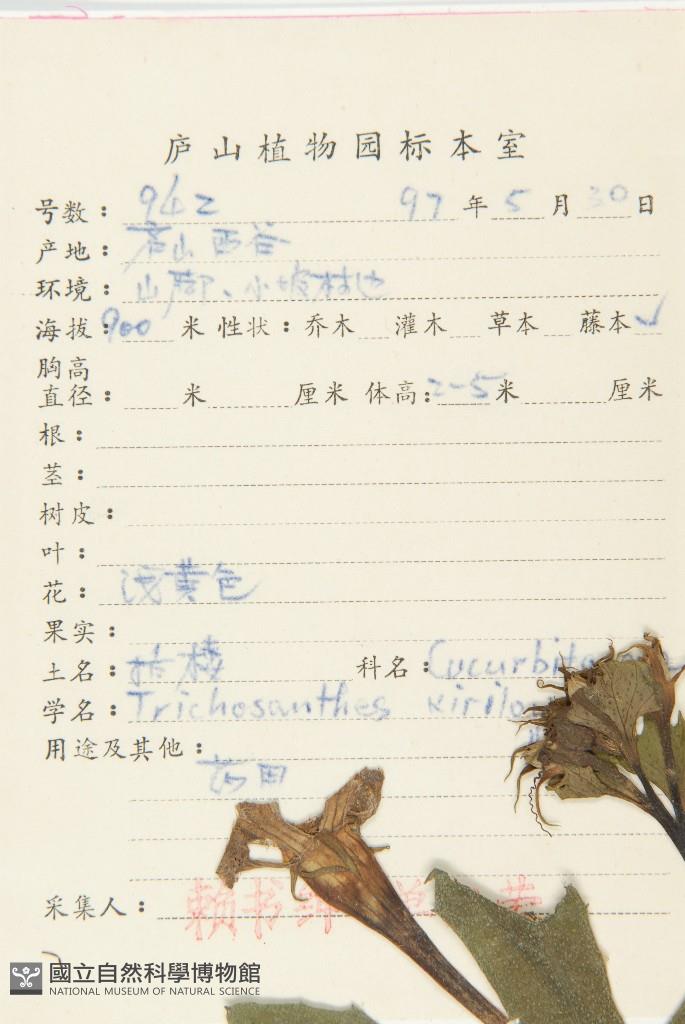 庐山植物园标本室
号数：942 97年5月30日
产地：庐山西谷
环境：山脚、小坡村边
海拔：900米 性状：乔木 灌木 草本 藤本✓
胸高
直径： 米 厘米 体高：2-5米 厘米
根：
茎：
树皮：
叶：
花：浅黄色
果实：
土名：栝楼 科名：Cucurbita
学名：Trichosanthes kirilo
用途及其他：
药用
采集人：赖书绅
國立自然科學博物館
NATIONAL MUSEUM OF NATURAL SCIENCE